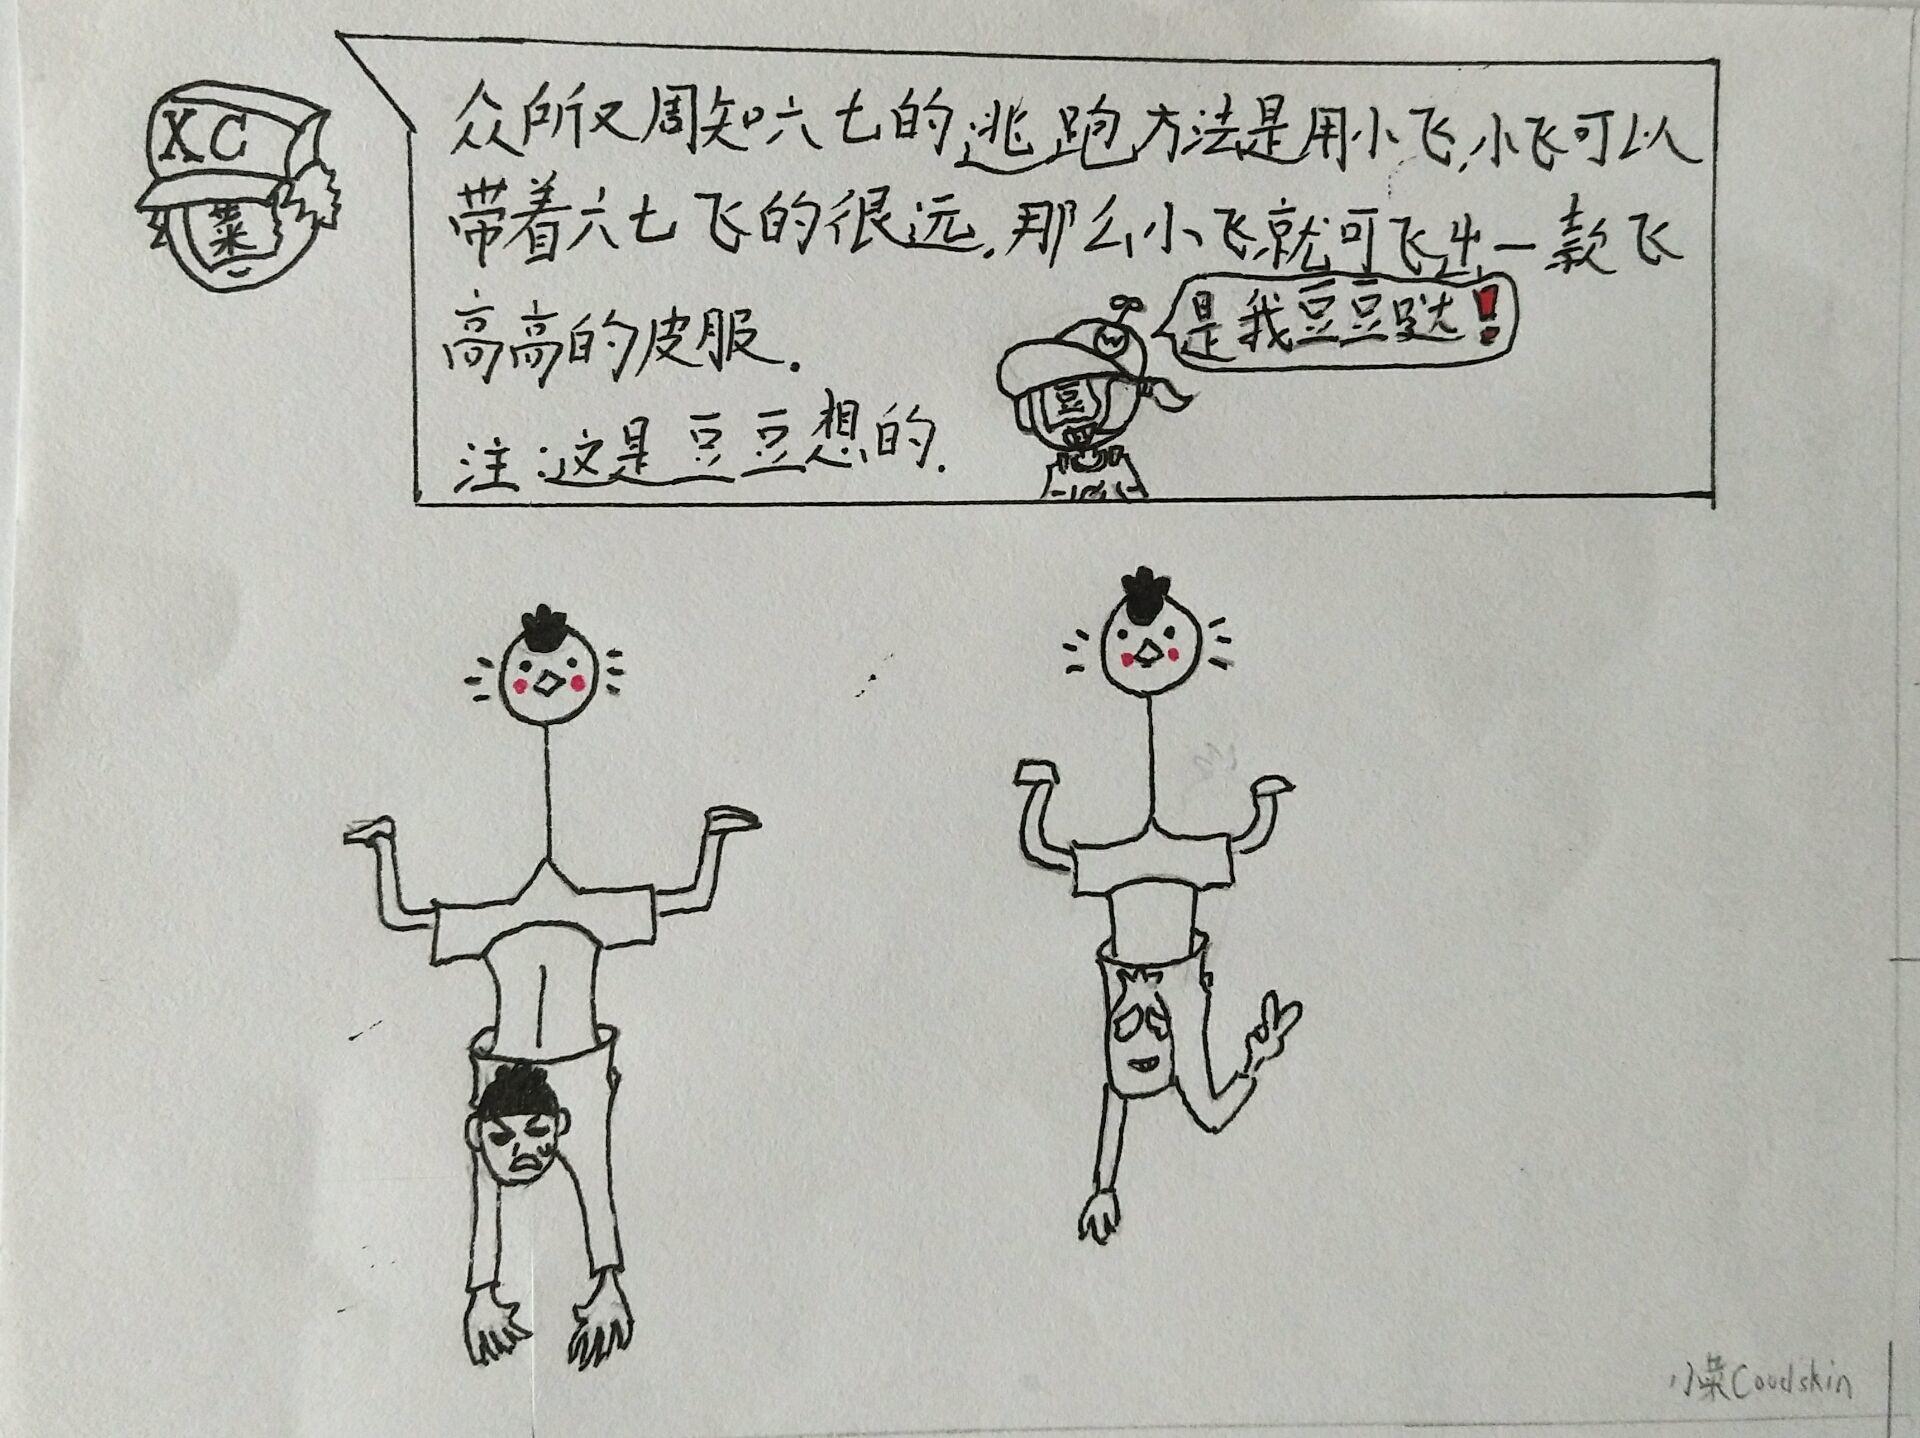 XC
菜
众所又周知六七的逃跑方法是用小飞,小飞可以
带着六七飞的很远.那么小飞就可飞出一款飞
高高的皮服.
是我豆豆哒!
W
豆
注:这是豆豆想的.
小菜Coudskin